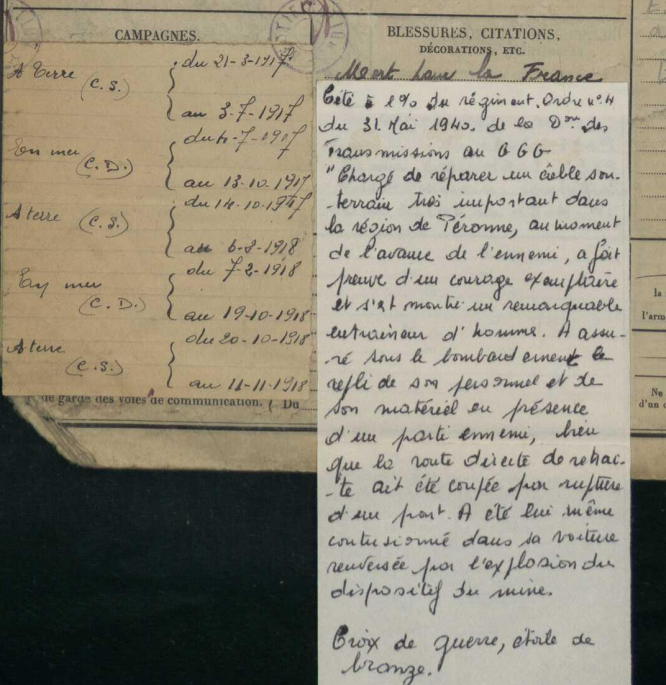 CAMPAGNES.
A Terre
(C. S.)
du 21-3-1917
au 3-7-1917
En mer
(C. D.)
du 4-7-1917
au 13-10-1917
A terre
(C. S.)
du 14-10-1917
au 6-2-1918
En mer
(C. D.)
du 7-2-1918
au 19-10-1918
A terre
(C. S.)
du 20-10-1918
au 11-11-1918
de garde des voies de communication. ( Du
BLESSURES, CITATIONS,
DÉCORATIONS, ETC.
Mort pour la France
Cité à l'O/ du régiment. Ordre n° 4
du 31 Mai 1940. de la Don des
Transmissions au GQG
"Chargé de réparer un câble sou-
-terrain très important dans
la région de Péronne, au moment
de l'avance de l'ennemi, a fait
preuve d'un courage exemplaire
et s'est montré un remarquable
entraineur d'homme. A assu-
-ré sous le bombardement le
repli de son personnel et de
son matériel en présence
d'un parti ennemi, bien
que la route directe de retrai-
-te ait été coupée par rupture
d'un pont. A été lui même
contusionné dans sa voiture
renversée par l'explosion du
dispositif du mine.
Croix de guerre, étoile de
bronze.
la
l'arm
No
d'un c